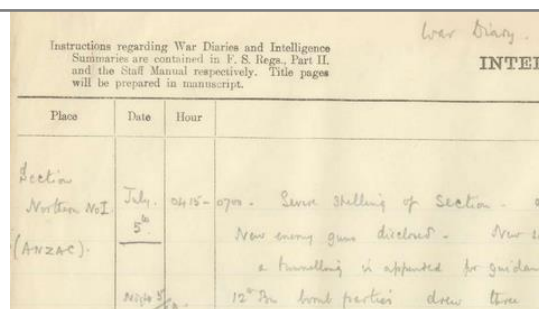 War Diary.
Instructions regarding War Diaries and Intelligence
Summaries are contained in F. S. Regs., Part II.
and the Staff Manual respectively. Title pages
will be prepared in manuscript.
INTEL
Place Date Hour
Section
Northern No I.
(ANZAC).
July.
5th
0415- 0700 - Severe shelling of Section -
New enemy guns disclosed - New
a tunnelling is appointed for guidan
Night 5/
12th Bn bomb parties drew three